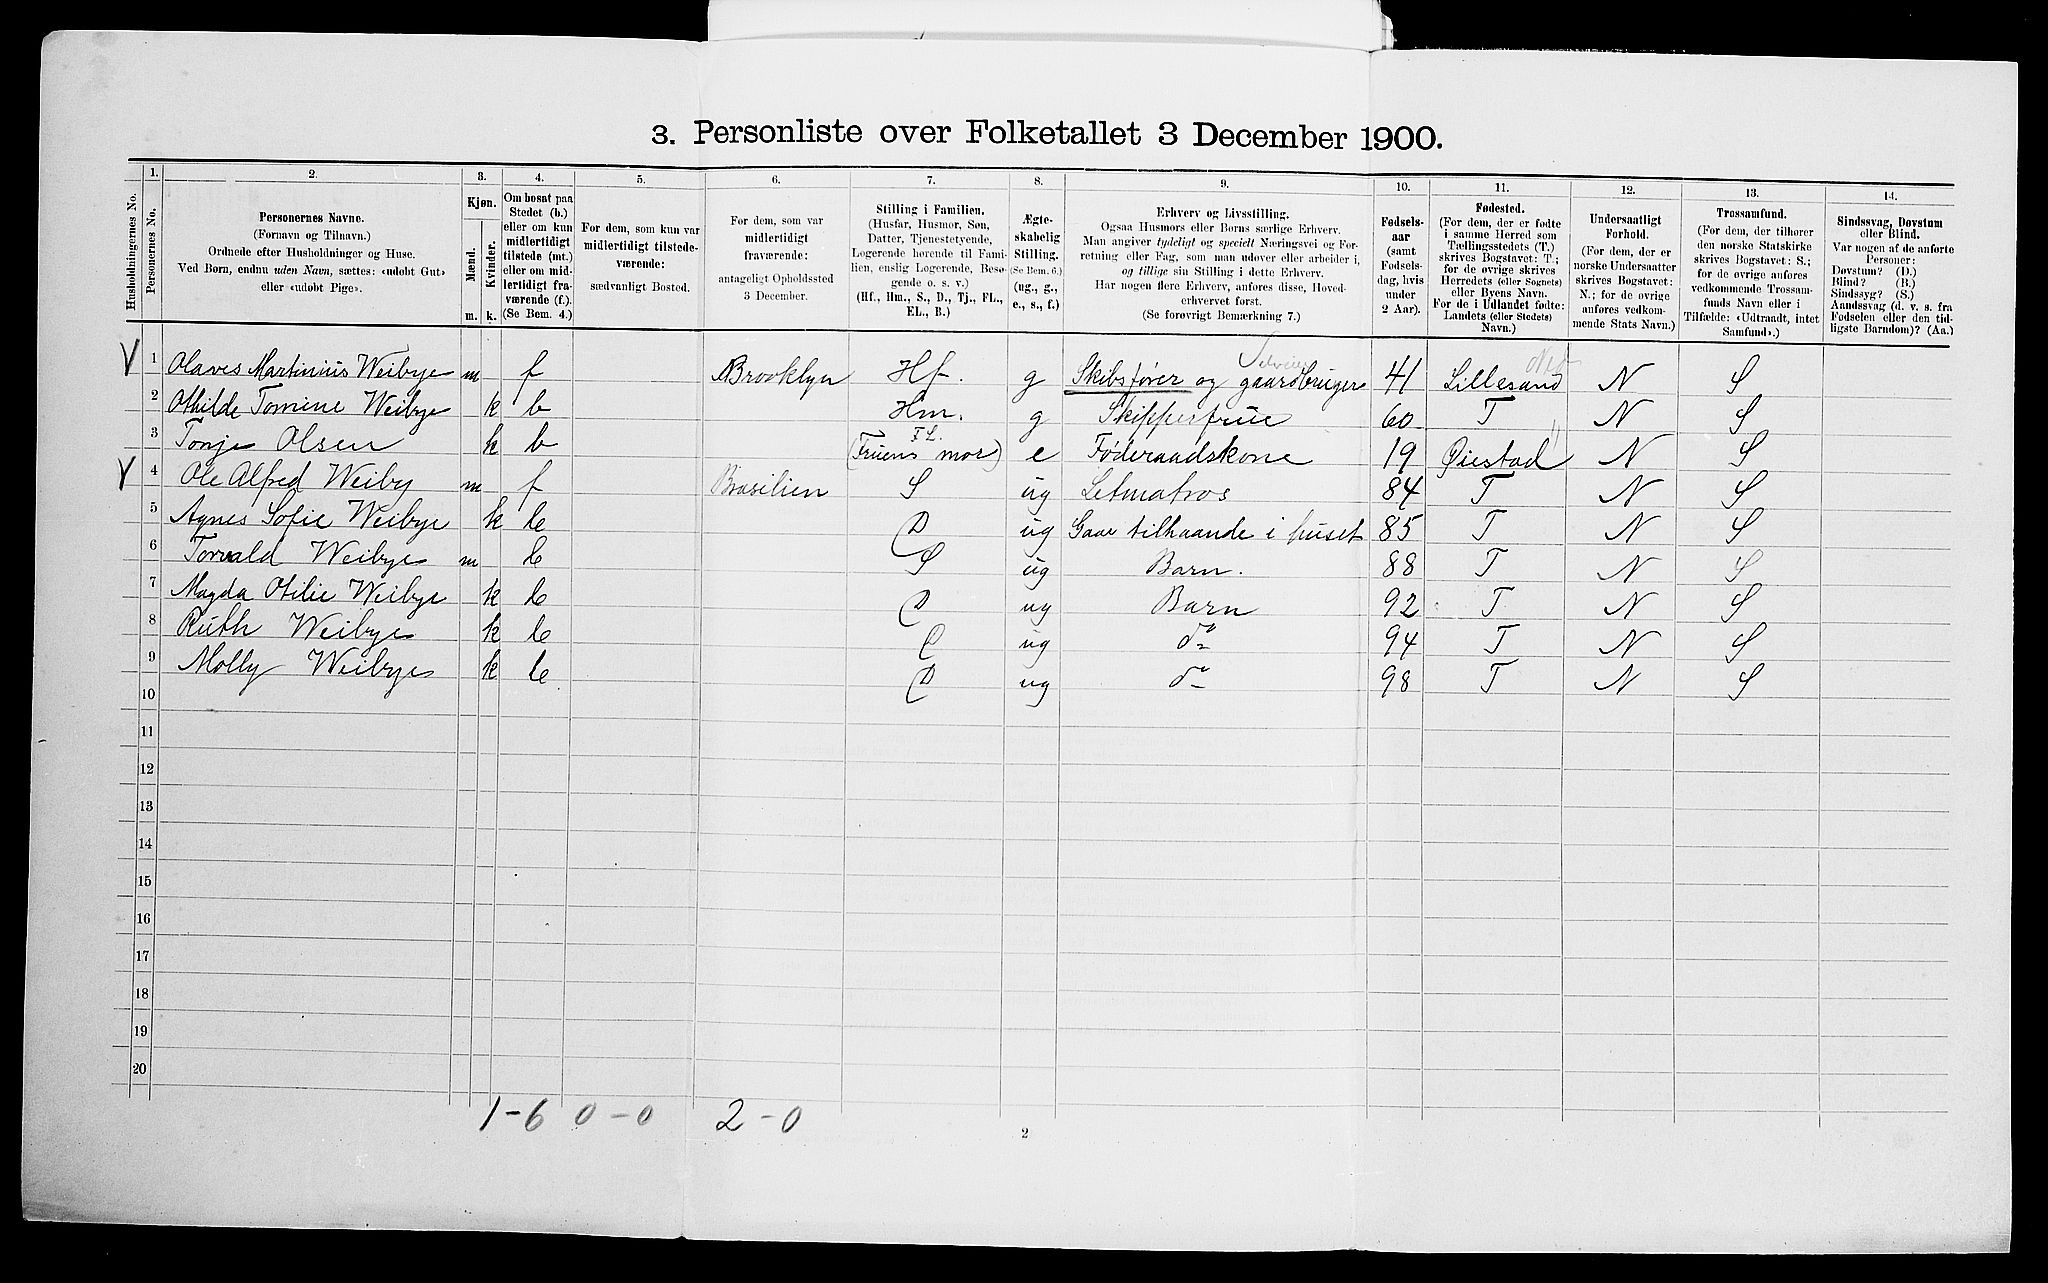 3. Personliste over Folketallet 3 December 1900.
Husholdningernes No.
1.
Personernes No.
2.
Personernes Navne.
(Fornavn og Tilnavn.)
Ordnede efter Husholdninger og Huse.
Ved Børn, endnu uden Navn, sættes: «udøbt Gut»
eller «udøbt Pige».
3.
Kjøn.
Mænd.
Kvinder.
m. k.
4.
Om bosat paa
Stedet (b.)
eller om kun
midlertidigt
tilstede (mt.)
eller om mid-
lertidigt fra-
værende (f.).
(Se Bem. 4.)
5.
For dem, som kun var
midlertidigt tilstede-
værende:
sædvanligt Bosted.
6.
For dem, som var
midlertidigt
fraværende:
antageligt Opholdssted
3 December.
7.
Stilling i Familien.
(Husfar, Husmor, Søn,
Datter, Tjenestetyende,
Logerende hørende til Fami-
lien, enslig Logerende, Besø-
gende o. s. v.)
(Hf., Hm., S., D., Tj., FL.,
EL., B.)
8.
Ægte-
skabelig
Stilling.
(Se Bem. 6.)
(ug., g.,
e., s., f.)
9.
Erhverv og Livsstilling.
Ogsaa Husmors eller Børns særlige Erhverv.
Man angiver tydeligt og specielt Næringsvei og For-
retning eller Fag, som man udøver eller arbeider i,
og tillige sin Stilling i dette Erhverv.
Har nogen flere Erhverv, anføres disse, Hoved-
erhvervet først.
(Se forøvrigt Bemærkning 7.)
10.
Fødsels-
aar
(samt
Fødsels-
dag, hvis
under
2 Aar).
11.
Fødested.
(For dem, der er fødte
i samme Herred som
Tællingsstedets (T.)
skrives Bogstavet: T.;
for de øvrige skrives
Herredets (eller Sognets)
eller Byens Navn.
For de i Udlandet fødte:
Landets (eller Stedets)
Navn.)
12.
Undersaatligt
Forhold.
(For dem, der er
norske Undersaatter
skrives Bogstavet:
N.; for de øvrige
anføres vedkom-
mende Stats Navn.)
13.
Trossamfund.
(For dem, der tilhører
den norske Statskirke
skrives Bogstavet: S.;
for de øvrige anføres
vedkommende Trossam-
funds Navn eller i
Tilfælde: «Udtraadt, intet
Samfund».)
14.
Sindssvag, Døvstum
eller Blind.
Var nogen af de anførte
Personer:
Døvstum? (D.)
Blind? (B.)
Sindssyg? (S.)
Aandssvag (d. v. s. fra
Fødselen eller den tid-
ligste Barndom)? (Aa.)
V 1 Olaves Martinius Weibye m f Brooklyn Hf. g Skibsfører og gaardbruger 41 Lillesand N S
2 Othilde Tomine Weibye k b Hm. g Skippersfrue 60 T N S
3 Tonje Olsen k b FL. (Fruens mor) e Føderaadskone 19 Øiestad N S
V 4 Ole Alfred Weiby m f Brasilien S ug Letmatros 84 T N S
5 Agnes Sofie Weibye k b D ug Gaar tilhaande i huset 85 T N S
6 Torvald Weibye m b S ug Barn. 88 T N S
7 Magda Otilie Weibye k b D ug Barn 92 T N S
8 Ruth Weibye k b D ug do 94 T N S
9 Molly Weibye k b D ug do 98 T N S
10
11
12
13
14
15
16
17
18
19
20
1-6 0-0 2-0
2